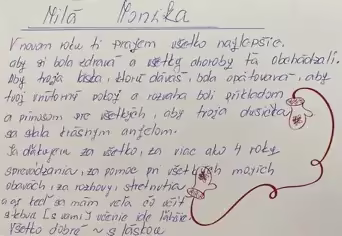 Milá Monika
V novom roku ti prajem všetko najlepšie,
aby si bola zdravá a všetky choroby ťa obchádzali.
Aby tvoja láska, ktorú dávaš, bola opätovaná, aby
tvoj vnútorný pokoj a rozvaha boli príkladom
a prínosom pre všetkých, aby tvoja dušička
sa stala krásnym anjelom.
Ja ďakujem za všetko, za viac ako 4 roky
sprevádzania, za pomoc pri všetkých mojich
obavách, za rozhovy, stretnutia
a aj keď sa mám veľa čo učiť
s tebou [s vami] učenie ide ľahšie
Všetko dobré ~ s láskou